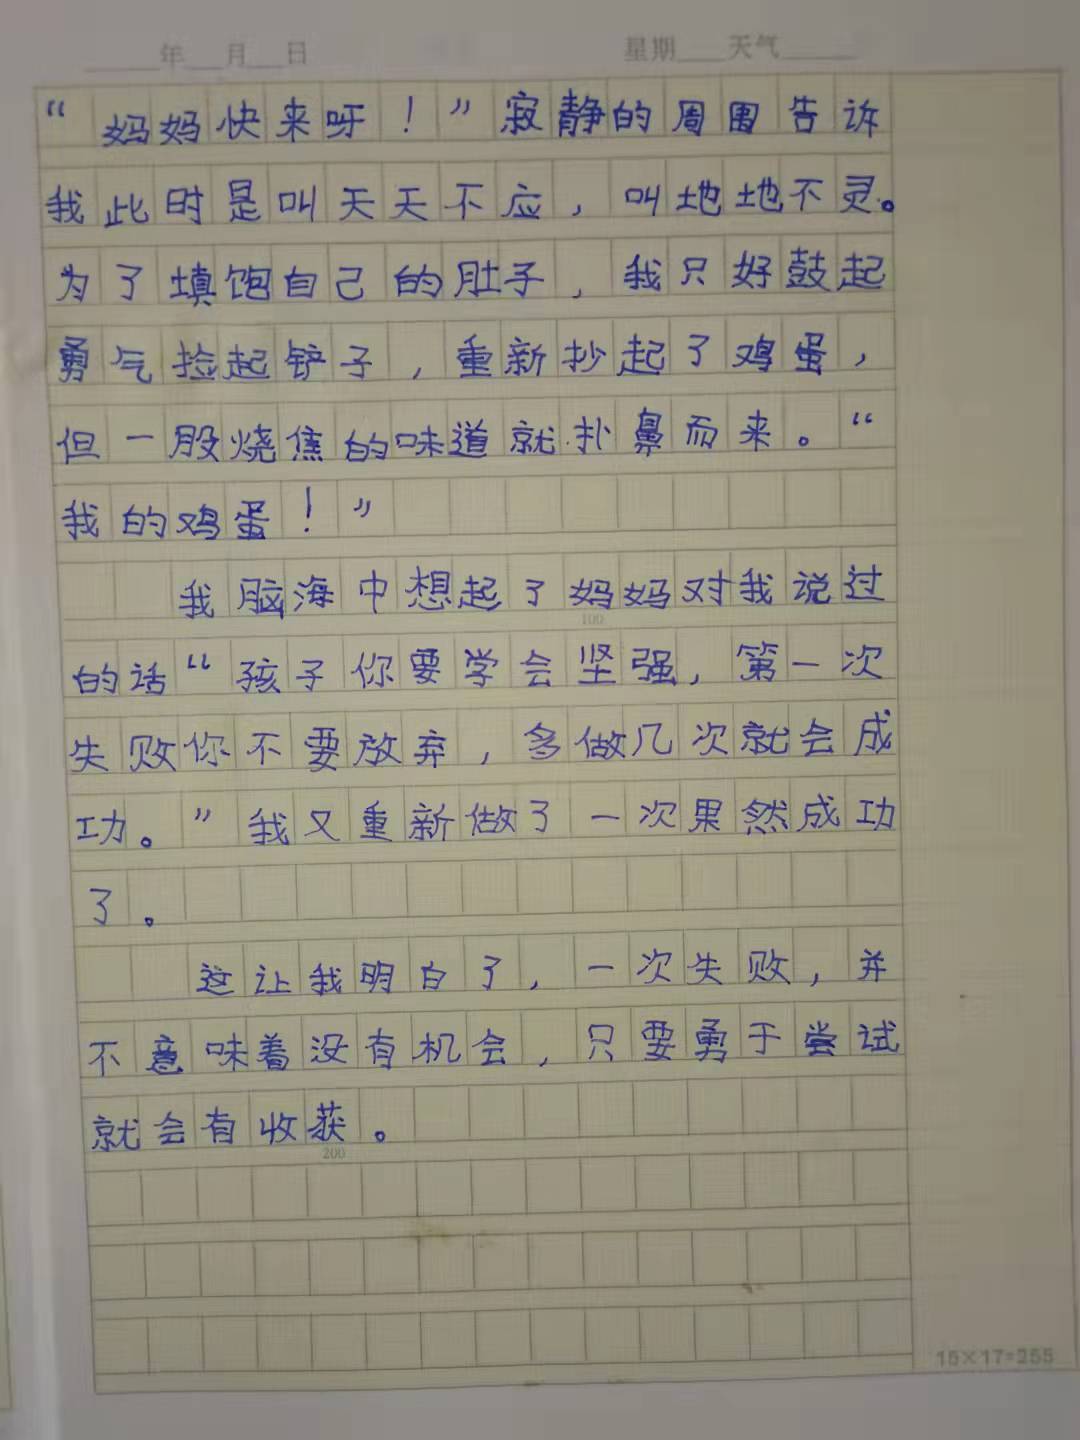 年 月 日 星期 天气
“妈妈快来呀！”寂静的周围告诉
我此时是叫天天不应，叫地地不灵。
为了填饱自己的肚子，我只好鼓起
勇气捡起铲子，重新抄起了鸡蛋，
但一股烧焦的味道就扑鼻而来。“
我的鸡蛋！”
我脑海中想起了妈妈对我说过
100
的话“孩子你要学会坚强，第一次
失败你不要放弃，多做几次就会成
功。”我又重新做了一次果然成功
了。
这让我明白了，一次失败，并
不意味着没有机会，只要勇于尝试
就会有收获。
200
15×17=255